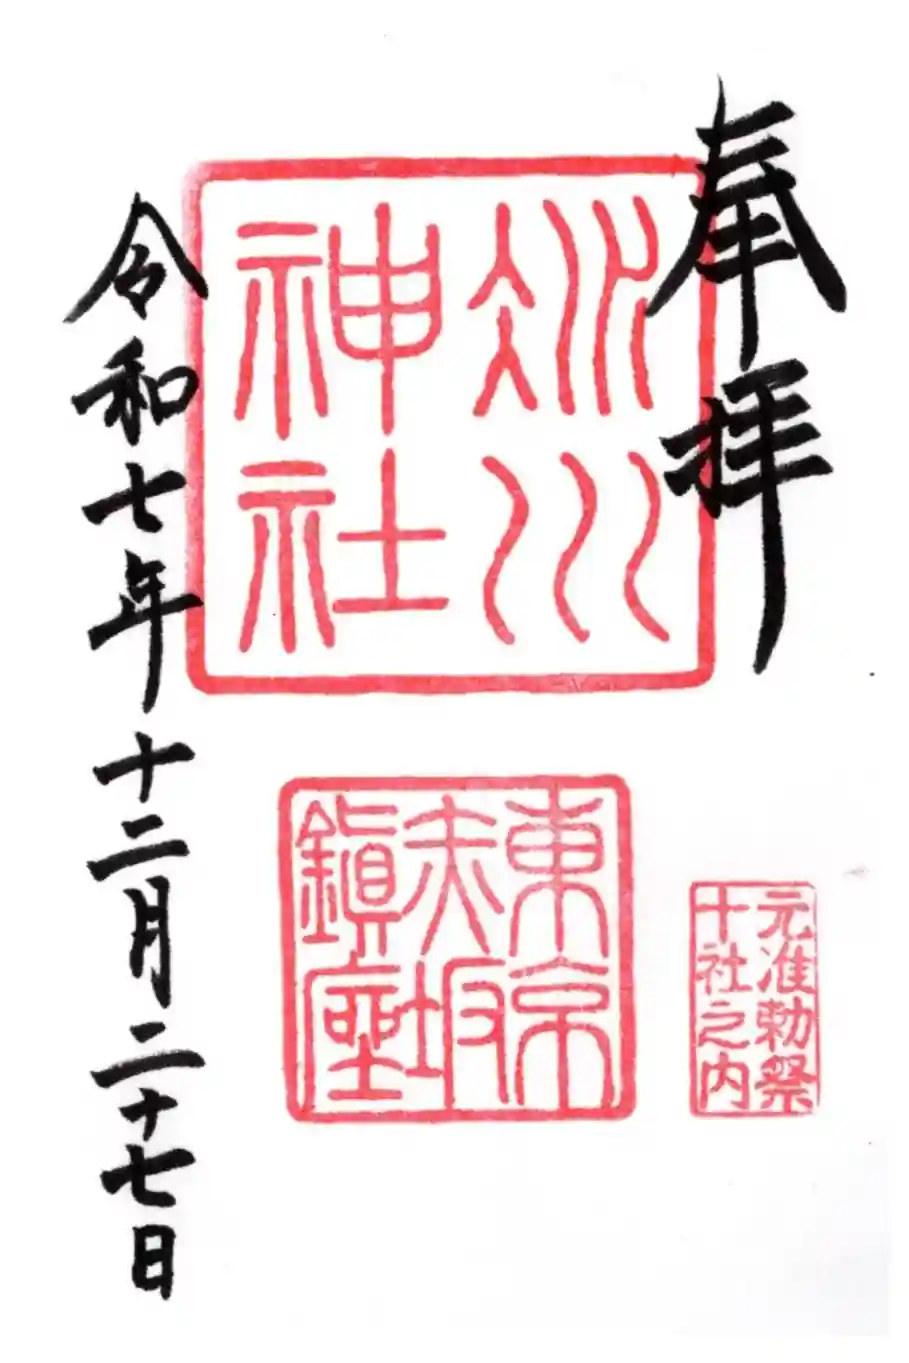 奉拝
氷川
神社
東京
赤坂
鎮座
元准勅祭
十社之内
令和七年十二月二十七日